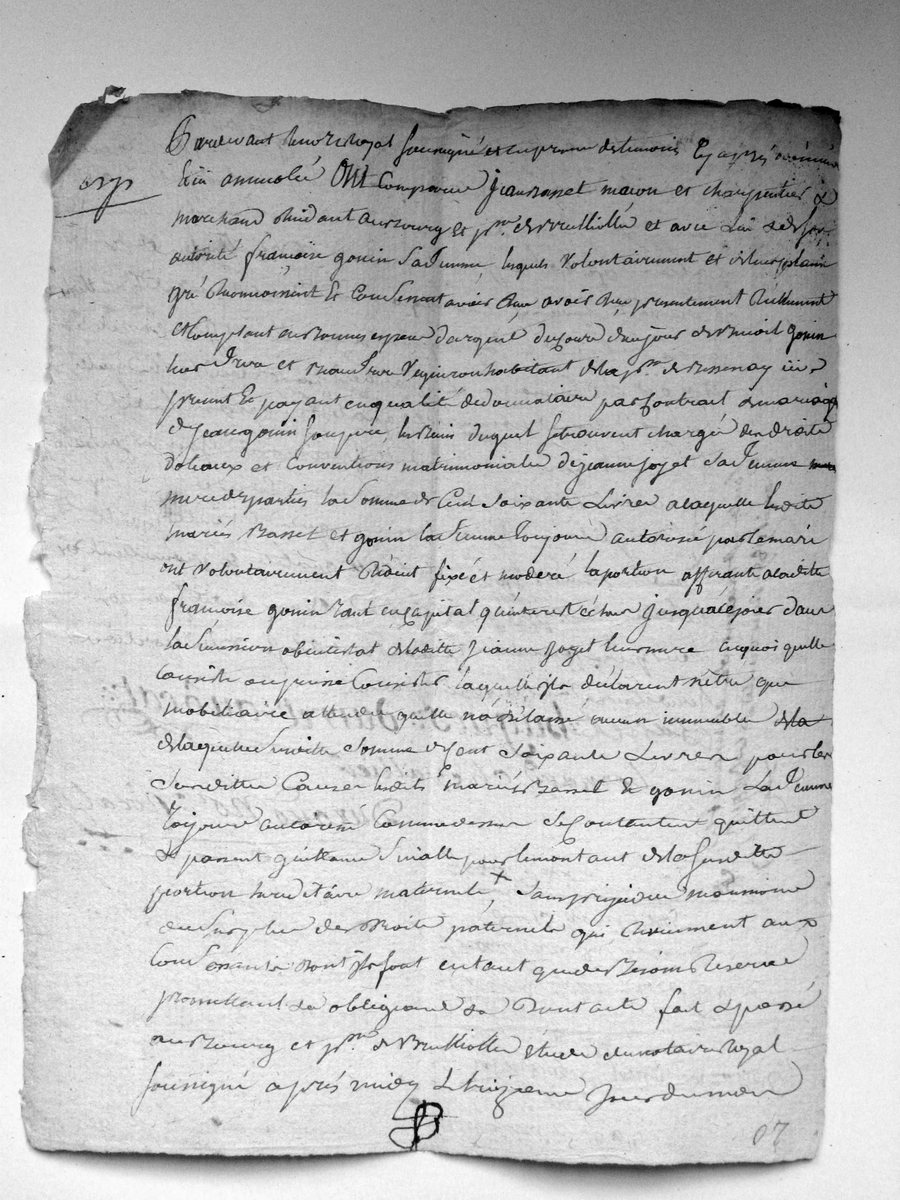 Pardevant Nore Royal soussigné et en presence des temoins cy après
comparu jean basset macon et charpentier &
marchand residant au bourg et psse de Brulliolle et avec lui de son
autorité françoise gonin sa femme, lesquels volontairement et de leur plein
gré reconnoissent et confessent avoir reçu présentement réellement
et comptant au bonnes especes d'argent du cours de ce jour de benoit gonin
leur frere et beau frere vigneron habitant de la psse de Bessenay ici
present et payant en qualité de donnataire par contrait de mariage
de jean gonin son pere, les biens duquel se trouvent chargés des droits
dotaux et conventions matrimoniales de jeanne joyet sa femme
mere des parties la somme de Cent soixante Livres a laquelle lesdits
mariés Basset et gonin la femme toujours autorisée par le mari
ont volontairement réduit fixé et moderé la portion afferante a ladite
françoise gonin tant en capital qu'interest echus jusqu'a ce jour dans
la succession abintestat de ladite jeanne joyet leur mere en quoi quelle
consiste ou puisse consister laquelle ils déclarent n'être que
mobiliaire attendu quelle n'a délaissé aucun immeuble
de laquelle ditte somme de Cent soixante Livres pour les
susdittes causes lesdits mariés Basset et gonin la femme
toujours autorisée comme dessus se contentent quittent
& passent quittance finalle pour le montant de la susditte
portion hereditaire maternelle, sans prejudice neanmoins
du surplus des droits paternels qui reviennent aux
confessants dont ils font en tant que de besoin reserve
promettant &a obligeant &a Dont acte fait & passé
au Bourg et psse de Brulliolle étude du notaire royal
soussigné après midy le treizieme jour du mois
07